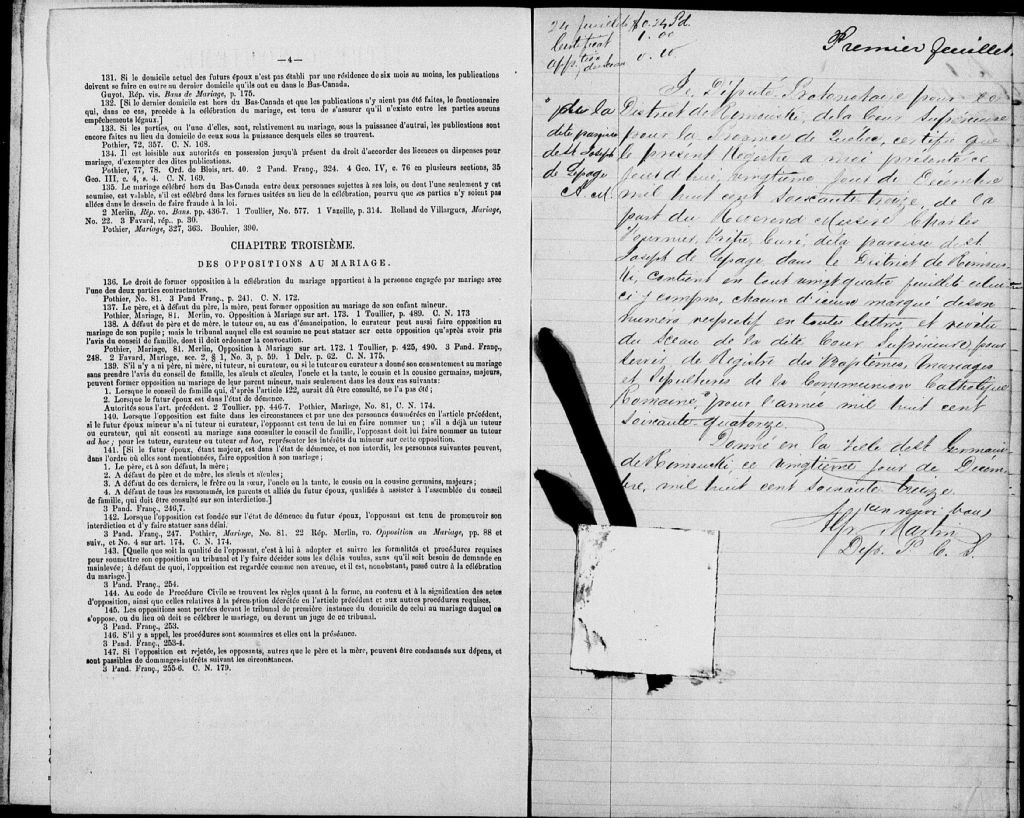 —4—
131. Si le domicile actuel des futurs époux n'est pas établi par une résidence de six mois au moins, les publications
doivent se faire en outre au dernier domicile qu'ils ont eu dans le Bas-Canada.
Guyot, Rép. vis. Bans de Mariage, p. 175.
132. [Si le dernier domicile est hors du Bas-Canada et que les publications n'y aient pas été faites, le fonctionnaire
qui, dans ce cas, procède à la célébration du mariage, est tenu de s'assurer qu'il n'existe entre les parties aucuns
empêchements légaux.]
133. Si les parties, ou l'une d'elles, sont, relativement au mariage, sous la puissance d'autrui, les publications sont
encore faites au lieu du domicile de ceux sous la puissance desquels elles se trouvent.
Pothier, 72, 357. C. N. 168.
134. Il est loisible aux autorités en possession jusqu'à présent du droit d'accorder des licences ou dispenses pour
mariage, d'exempter des dites publications.
Pothier, 77, 78. Ord. de Blois, art. 40. 2 Pand. Franç., 324. 4 Geo. IV, c. 76 en plusieurs sections, 35
Geo. III, c. 4, s. 4. C. N. 169.
135. Le mariage célébré hors du Bas-Canada entre deux personnes sujettes à ses lois, ou dont l'une seulement y est
soumise, est valable, s'il est célébré dans les formes usitées au lieu de la célébration, pourvu que les parties n'y soient pas
allées dans le dessein de faire fraude à la loi.
2 Merlin, Rép. vo. Bans. pp. 436-7. 1 Toullier, No. 577. 1 Vazeille, p. 314. Rolland de Villargues, Mariage,
No. 22. 3 Favard, rép., p. 30.
Pothier, Mariage, 327, 363. Bouhier, 390.
CHAPITRE TROISIÈME.
DES OPPOSITIONS AU MARIAGE.
136. Le droit de former opposition à la célébration du mariage appartient à la personne engagée par mariage avec
l'une des deux parties contractantes.
Pothier, No. 81. 3 Pand Franç., p. 241. C. N. 172.
137. Le père, et à défaut du père, la mère, peut former opposition au mariage de son enfant mineur.
Pothier, Mariage, 81. Merlin, vo. Opposition à Mariage sur art. 173. 1 Toullier, p. 489. C. N. 173
138. A défaut de père et de mère, le tuteur ou, au cas d'émancipation, le curateur peut aussi faire opposition au
mariage de son pupile; mais le tribunal auquel elle est soumise ne peut statuer sur cette opposition qu'après avoir pris
l'avis du conseil de famille, dont il doit ordonner la convocation.
Pothier, Mariage, 81. Merlin, Opposition à Mariage sur art. 172. 1 Toullier, p. 425, 490. 3 Pand. Franç.,
248. 2 Favard, Mariage, sec. 2, § 1, No. 3, p. 59. 1 Delv. p. 62. C. N. 175.
139. S'il n'y a ni père, ni mère, ni tuteur, ni curateur, ou si le tuteur ou curateur a donné son consentement au mariage
sans prendre l'avis du conseil de famille, les aïeuls et aïeules, l'oncle et la tante, le cousin et la cousine germains, majeurs,
peuvent former opposition au mariage de leur parent mineur, mais seulement dans les deux cas suivants:
1. Lorsque le conseil de famille qui, d'après l'article 122, aurait dû être consulté, ne l'a pas été;
2. Lorsque le futur époux est dans l'état de démence.
Autorités sous l'art. précédent. 2 Toullier. pp. 446-7. Pothier, Mariage, No. 81, C. N. 174.
140. Lorsque l'opposition est faite dans les circonstances et par une des personnes énumérées en l'article précédent,
si le futur époux mineur n'a ni tuteur ni curateur, l'opposant est tenu de lui en faire nommer un; s'il a déjà un tuteur
ou curateur, qui ait consenti au mariage sans consulter le conseil de famille, l'opposant doit lui faire nommer un tuteur
ad hoc; pour les tuteur, curateur ou tuteur ad hoc, représenter les intérêts du mineur sur cette opposition.
141. [Si le futur époux, étant majeur, est dans l'état de démence, et non interdit, les personnes suivantes peuvent,
dans l'ordre où elles sont mentionnées, faire opposition à son mariage;
1. Le père, et à son défaut, la mère;
2. A défaut de père et de mère, les aïeuls et aïeules;
3. A défaut de ces derniers, le frère ou la sœur, l'oncle ou la tante, le cousin ou la cousine germains, majeurs;
4. A défaut de tous les susnommés, les parents et alliés du futur époux, qualifiés à assister à l'assemblée du conseil
de famille, qui doit être consulté sur son interdiction.]
3 Pand. Franç., 246,7.
142. Lorsque l'opposition est fondée sur l'état de démence du futur époux, l'opposant est tenu de promouvoir son
interdiction et d'y faire statuer sans délai.
3 Pand. Franç., 247. Pothier, Mariage, No. 81. 22 Rép. Merlin, vo. Opposition au Mariage, pp. 88 et
suiv., et No. 4 sur art. 174. C. N. 174.
143. [Quelle que soit la qualité de l'opposant, c'est à lui à adopter et suivre les formalités et procédures requises
pour soumettre son opposition au tribunal et l'y faire décider sous les délais voulus, sans qu'il soit besoin de demande en
mainlevée; à défaut de quoi, l'opposition est regardée comme non avenue, et il est, nonobstant, passé outre à la célébration
du mariage.]
3 Pand. Franç., 254.
144. Au code de Procédure Civile se trouvent les règles quant à la forme, au contenu et à la signification des actes
d'opposition, ainsi que celles relatives à la péremption décrétée en l'article précédent et aux autres procédures requises.
145. Les oppositions sont portées devant le tribunal de première instance du domicile de celui au mariage duquel on
s'oppose, ou du lieu où doit se célébrer le mariage, ou devant un juge de ce tribunal.
3 Pand. Franç., 253.
146. S'il y a appel, les procédures sont sommaires et elles ont la préséance.
3 Pand. Franç., 253-4.
147. Si l'opposition est rejetée, les opposants, autres que le père et la mère, peuvent être condamnés aux dépens, et
sont passibles de dommages-intérêts suivant les circonstances.
3 Pand. Franç., 255-6. C. N. 179.
24 feuillets $0.24 Pd.
Certificat 1.00
Premier feuillet.
Je, Député Protonotaire pour le
District de Rimouski, de la Cour Supérieure
pour la Province de Québec, certifie que
le présent Registre a moi présenté ce
jourd'hui, vingtième jour de Décembre
mil huit cent soixante treize, de la
part du Révérend Messire Charles
Fournier, Prêtre, Curé, de la paroisse de St
Joseph de Lepage dans le District de Rimous-
ki contient en tout vingt quatre feuillets celui-
ci y compris, chacun d'iceux marqué de son
numéro respectif en toutes lettres, et revêtu
du Sceau de la dite Cour Supérieure, pour
servir de Registre des Baptêmes, Mariages
et Sépultures de la Communion Catholique
Romaine, pour l'année mil huit cent
soixante quatorze.
Donné en la Ville de St Germain
de Rimouski, ce vingtième jour de Décem-
bre, mil huit cent soixante treize.
Alp. Martin
Dép. P. C. S.
de la
dite paroisse
de St Joseph
de Lepage
A. M.